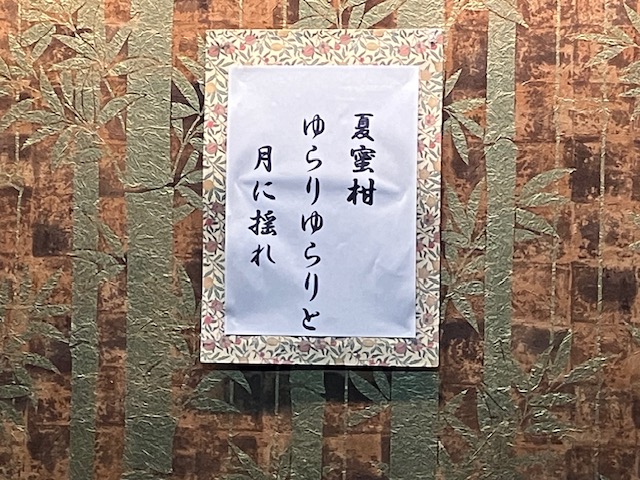 夏蜜柑
ゆらりゆらりと
月に揺れ